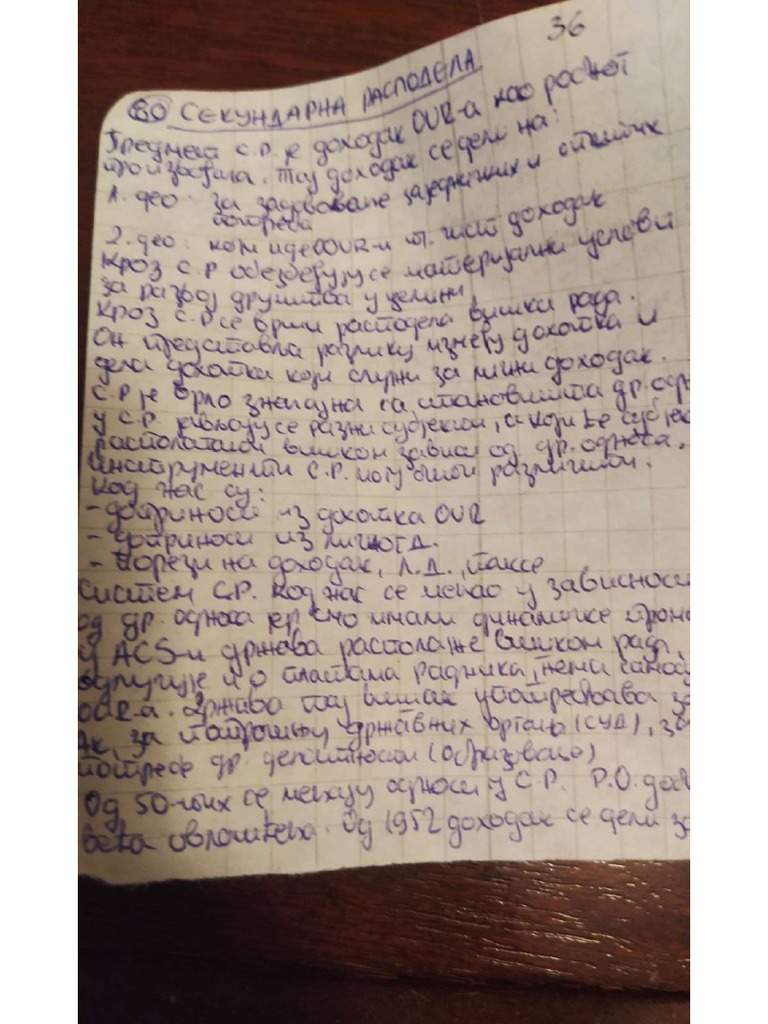 36
80 СЕКУНДАРНА РАСПОДЕЛА
Предмет С.Р. је доходак OUR-а као расход
производа. Тај доходак се дели на:
1. део: за задовољење заједничких и општих
потреба
2. део: који иде OUR-и тј. чист доходак
Кроз С.Р обезбеђују се материјални услови
за развој друштва у целини
Кроз С.Р се врши расподела вишка рада.
Он представља разлику између дохотка и
дела дохотка који служи за лични доходак.
С.Р је врло значајна са становишта др. одн
у С.Р. јављају се разни субјекти, а који ће субјек
располагати вишком зависи од др. односа.
Инструменти С.Р. могу бити различити.
Код нас су:
- доприноси из дохотка OUR
- доприноси из личног Д.
- порези на доходак, Л.Д., таксе
Систем С.Р. код нас се мењао у зависнос
од др. односа јер смо имали динамичке пром
У ACS-и држава располаже вишком рада,
одлучује и о платама радника, нема самос
OUR-а. Држава тај вишак употребљава за
Ак, за потрошњу државних органа (СУД), за
потребе др. делатности (образовање)
Од 50-тих се мењају односи у С.Р. Р.О. доб
већа овлашћења. Од 1952 доходак се дели за